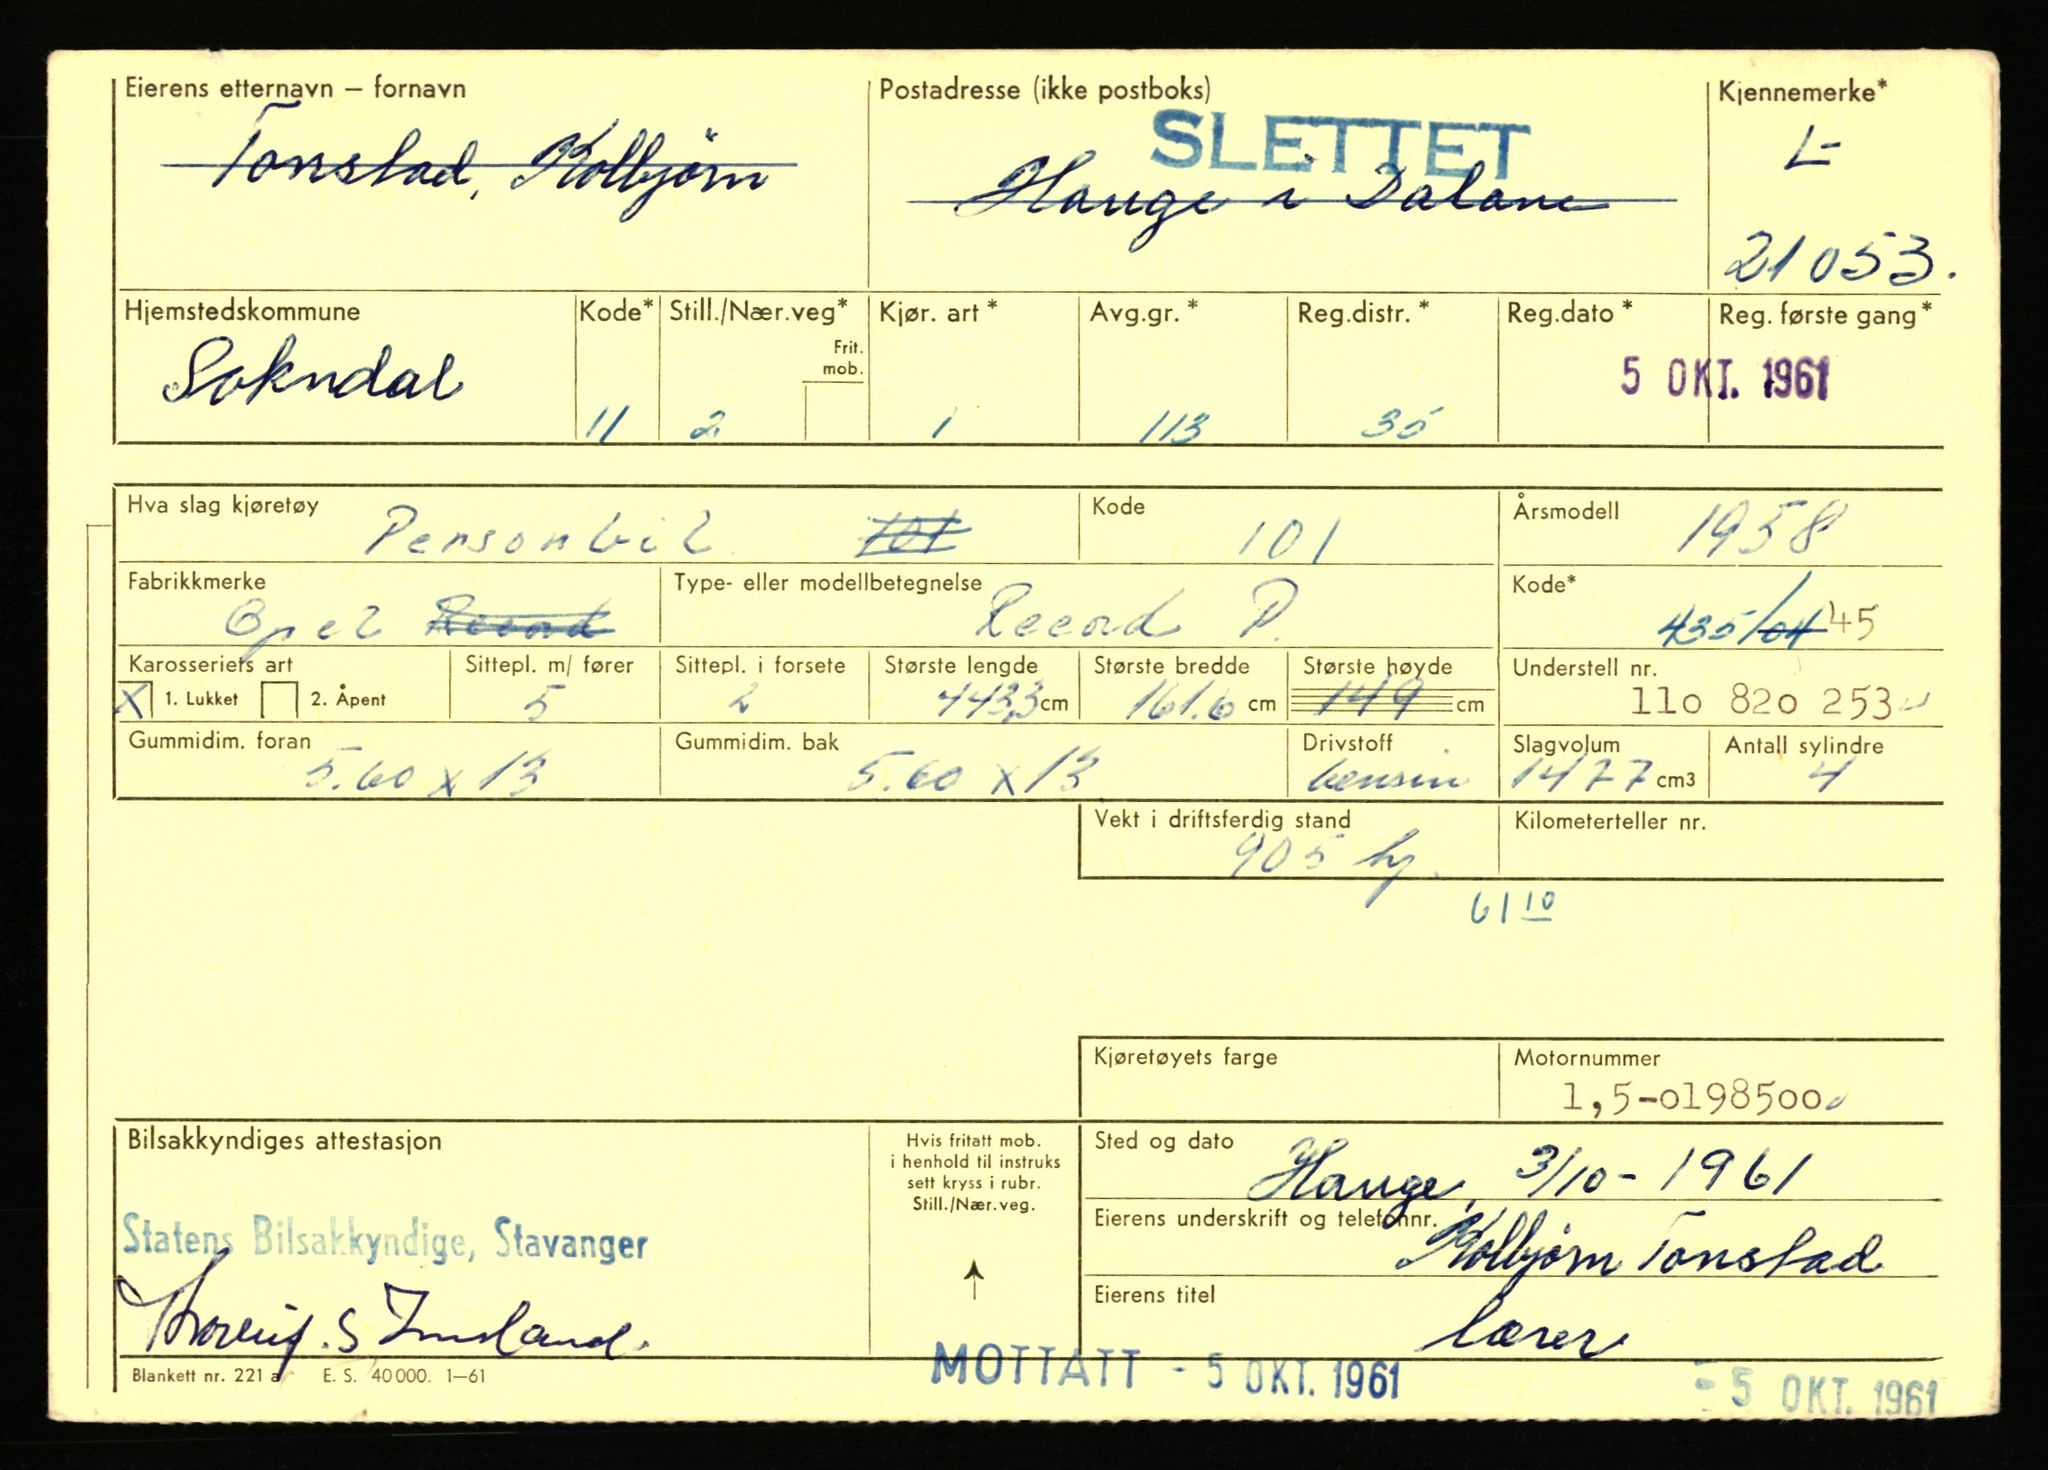 Eierens etternavn – fornavn
Postadresse (ikke postboks)
Kjennemerke*
SLETTET
Tonstad, Kolbjørn
Hauge i Dalane
L-
21053.
Hjemstedskommune
Kode*
Still./Nær.veg*
Kjør. art *
Avg.gr. *
Reg.distr. *
Reg.dato *
Reg. første gang*
Frit.
mob.
Sokndal
11
2
1
113
35
5 OKT. 1961
Hva slag kjøretøy
Personbil 101
Kode
101
Årsmodell
1958
Fabrikkmerke
Opel Record
Type- eller modellbetegnelse
Record P.
Kode*
435/04 45
Karosseriets art
X 1. Lukket 2. Åpent
Sittepl. m/ fører
5
Sittepl. i forsete
2
Største lengde
443,3 cm
Største bredde
161.6 cm
Største høyde
149 cm
Understell nr.
110 820 253
Gummidim. foran
5.60 x 13
Gummidim. bak
5.60 x 13
Drivstoff
bensin
Slagvolum
1477 cm3
Antall sylindre
4
Vekt i driftsferdig stand
905 kg.
Kilometerteller nr.
61 10
Kjøretøyets farge
Motornummer
1,5-0198500
Bilsakkyndiges attestasjon
Hvis fritatt mob.
i henhold til instruks
sett kryss i rubr.
Still./Nær.veg.
Sted og dato
Hauge, 3/10 - 1961
Statens Bilsakkyndige, Stavanger
Eierens underskrift og telefonnr.
Kolbjørn Tonstad
Eierens titel
lærer
Blankett nr. 221 a E. S. 40 000. 1–61
MOTTATT - 5 OKT. 1961
- 5 OKT. 1961